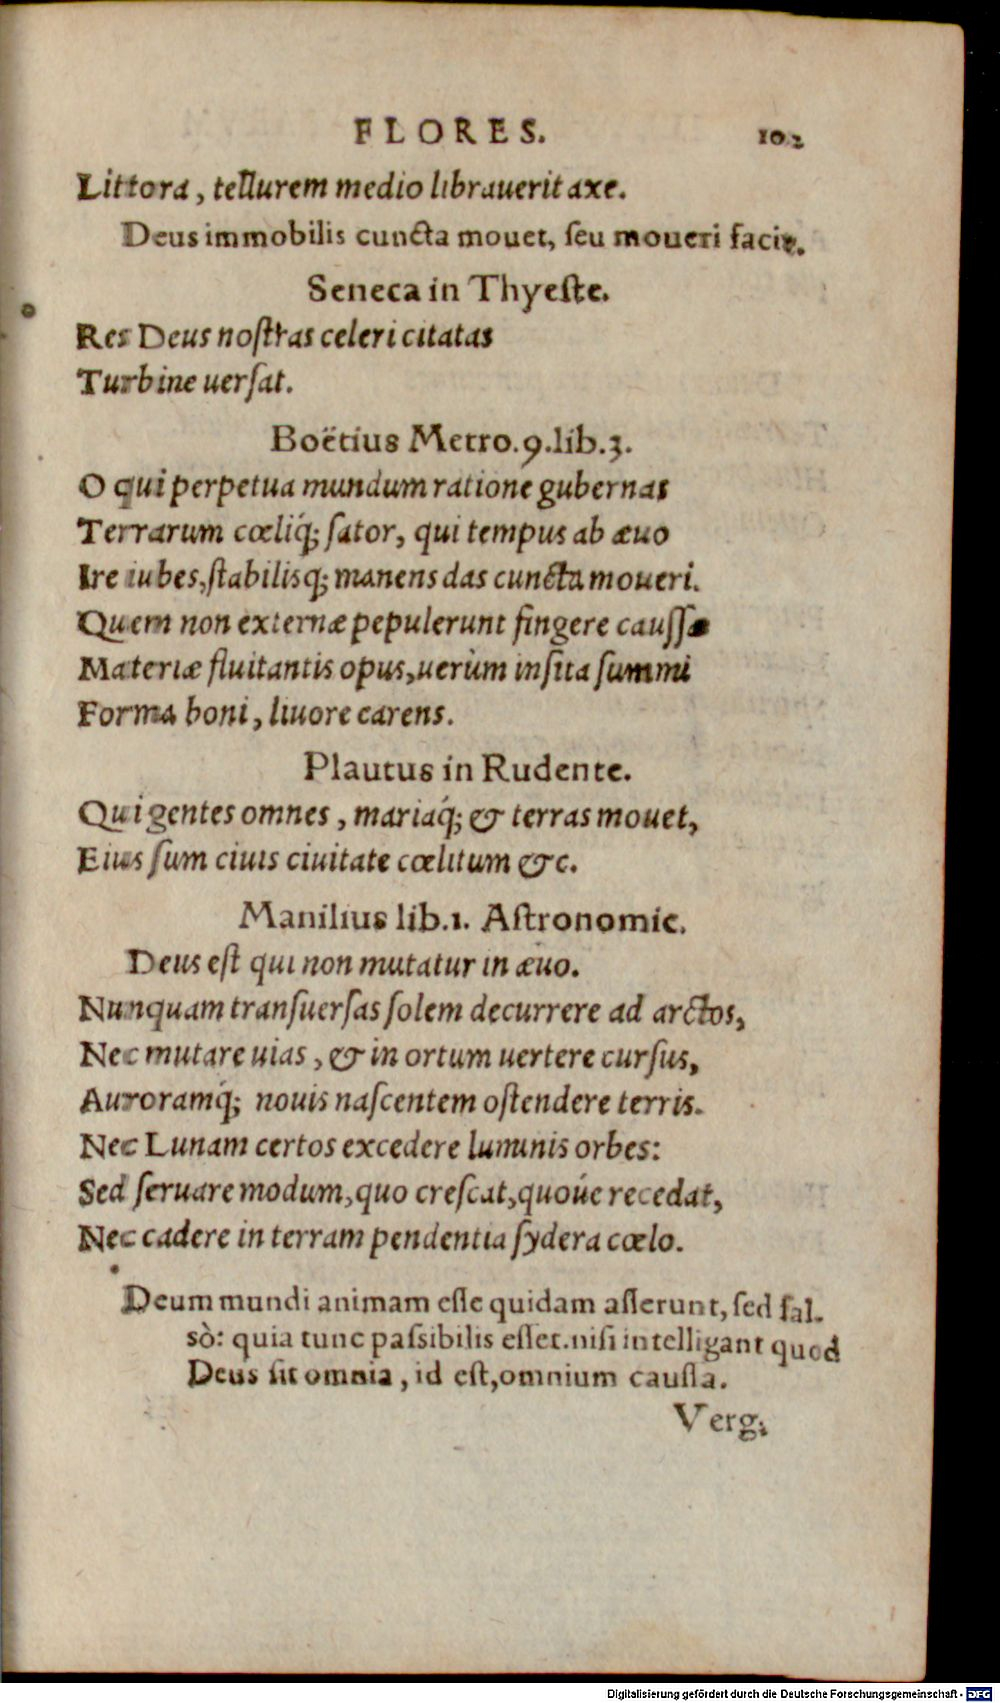 FLORES. 102
Littora, tellurem medio librauerit axe.
Deus immobilis cuncta mouet, ſeu moueri facit.
Seneca in Thyeſte.
Res Deus noſtras celeri citatas
Turbine uerſat.
Boëtius Metro.9.lib.3.
O qui perpetua mundum ratione gubernas
Terrarum cœliq́; ſator, qui tempus ab æuo
Ire iubes, ſtabilisq; manens das cuncta moueri.
Quem non externæ pepulerunt fingere cauſſæ
Materiæ fluitantis opus, uerùm inſita ſummi
Forma boni, liuore carens.
Plautus in Rudente.
Qui gentes omnes, mariaq́; & terras mouet,
Eius ſum ciuis ciuitate cœlitum &c.
Manilius lib.1. Aſtronomic.
Deus eſt qui non mutatur in æuo.
Nunquam transuerſas ſolem decurrere ad arctos,
Nec mutare uias, & in ortum uertere curſus,
Auroramq́; nouis naſcentem oſtendere terris.
Nec Lunam certos excedere luminis orbes:
Sed ſeruare modum, quo creſcat, quoúe recedat,
Nec cadere in terram pendentia ſydera cœlo.
Deum mundi animam eſſe quidam aſſerunt, ſed fal-
sò: quia tunc paſsibilis eſſet. niſi intelligant quod
Deus ſit omnia, id eſt, omnium cauſſa.
Verg.
Digitalisierung gefördert durch die Deutsche Forschungsgemeinschaft - DFG